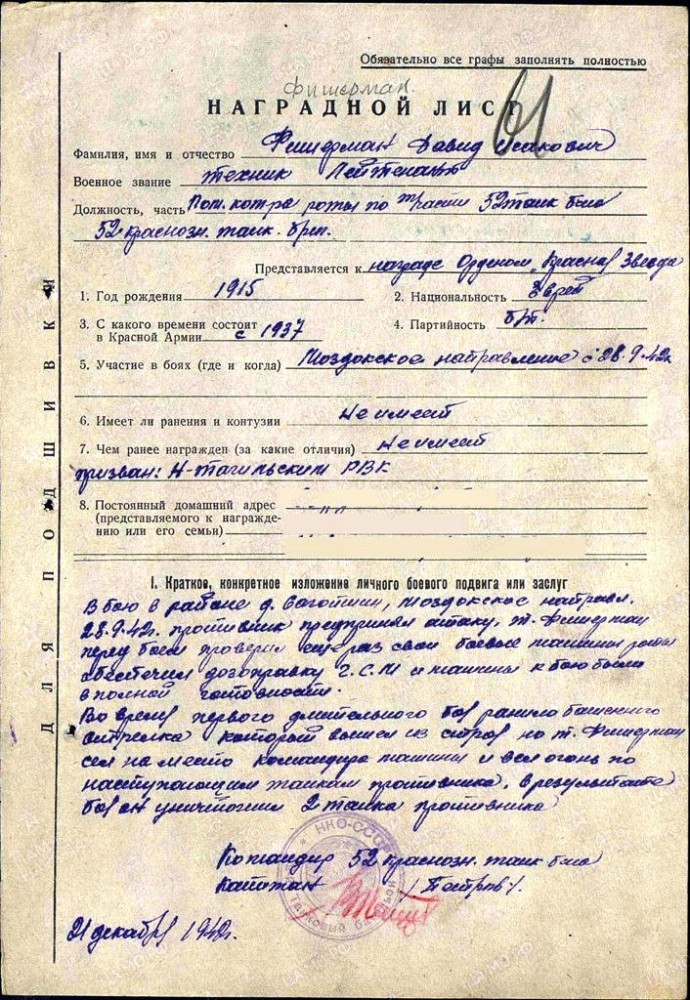 Обязательно все графы заполнять полностью
Фишерман
НАГРАДНОЙ ЛИСТ
Фамилия, имя и отчество Фишерман Давид Исакович
Военное звание техник Лейтенант
Должность, часть Пом. ком-ра роты по 52 танк б-на
52 краснозн. танк. бриг.
Представляется к награде Орденом "Красная Звезда"
1. Год рождения 1915
2. Национальность Еврей
3. С какого времени состоит
в Красной Армии с 1937
4. Партийность б/п.
5. Участие в боях (где и когда) Моздокское направление с 28.9.42г.
6. Имеет ли ранения и контузии Не имеет
7. Чем ранее награжден (за какие отличия) Не имеет
призван: Н-Тагильским РВК
8. Постоянный домашний адрес
(представляемого к награжде-
нию или его семьи)
ДЛЯ ПОДШИВКИ
I. Краткое, конкретное изложение личного боевого подвига или заслуг
В бою в районе д. Моздокское направл.
28.9.42г. противник предпринял атаку, т. Фишерман
перед боем проверил еще раз свои боевые машины роты
обеспечил дозаправку Г.С.М и машины к бою были
в полной готовности.
Во время первого длительного боя ранило башенного
стрелка который вышел из строя но т. Фишерман
сел на место командира машины и вел огонь по
наступающим танкам противника, в результате
боя он уничтожил 2 танка противника
Командир 52 краснозн. танк б-на
капитан /Петров/.
НКО-СССР
Танковый батальон
21 декабря 1942г.